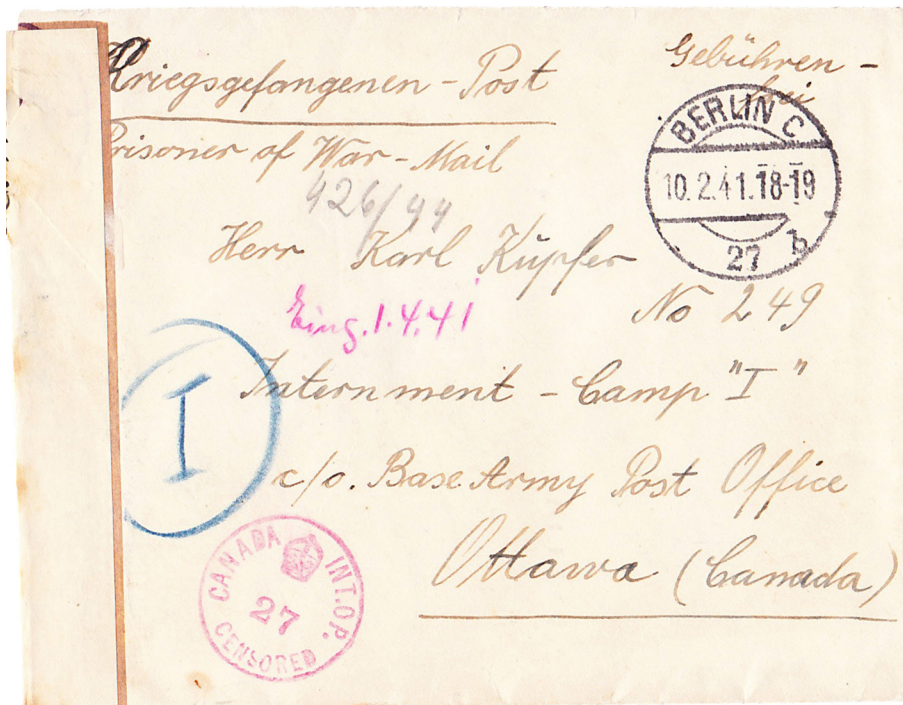 Kriegsgefangenen - Post
Gebühren -
frei
Prisoner of War - Mail
BERLIN C
10.2.41.18-19
27 b
426/44
Herr Karl Küpfer
No 249
Eing. 1.4.41
Internment - Camp "I"
I
c/o. Base Army Post Office
Ottawa (Canada)
CANADA INT.OP.
27
CENSORED